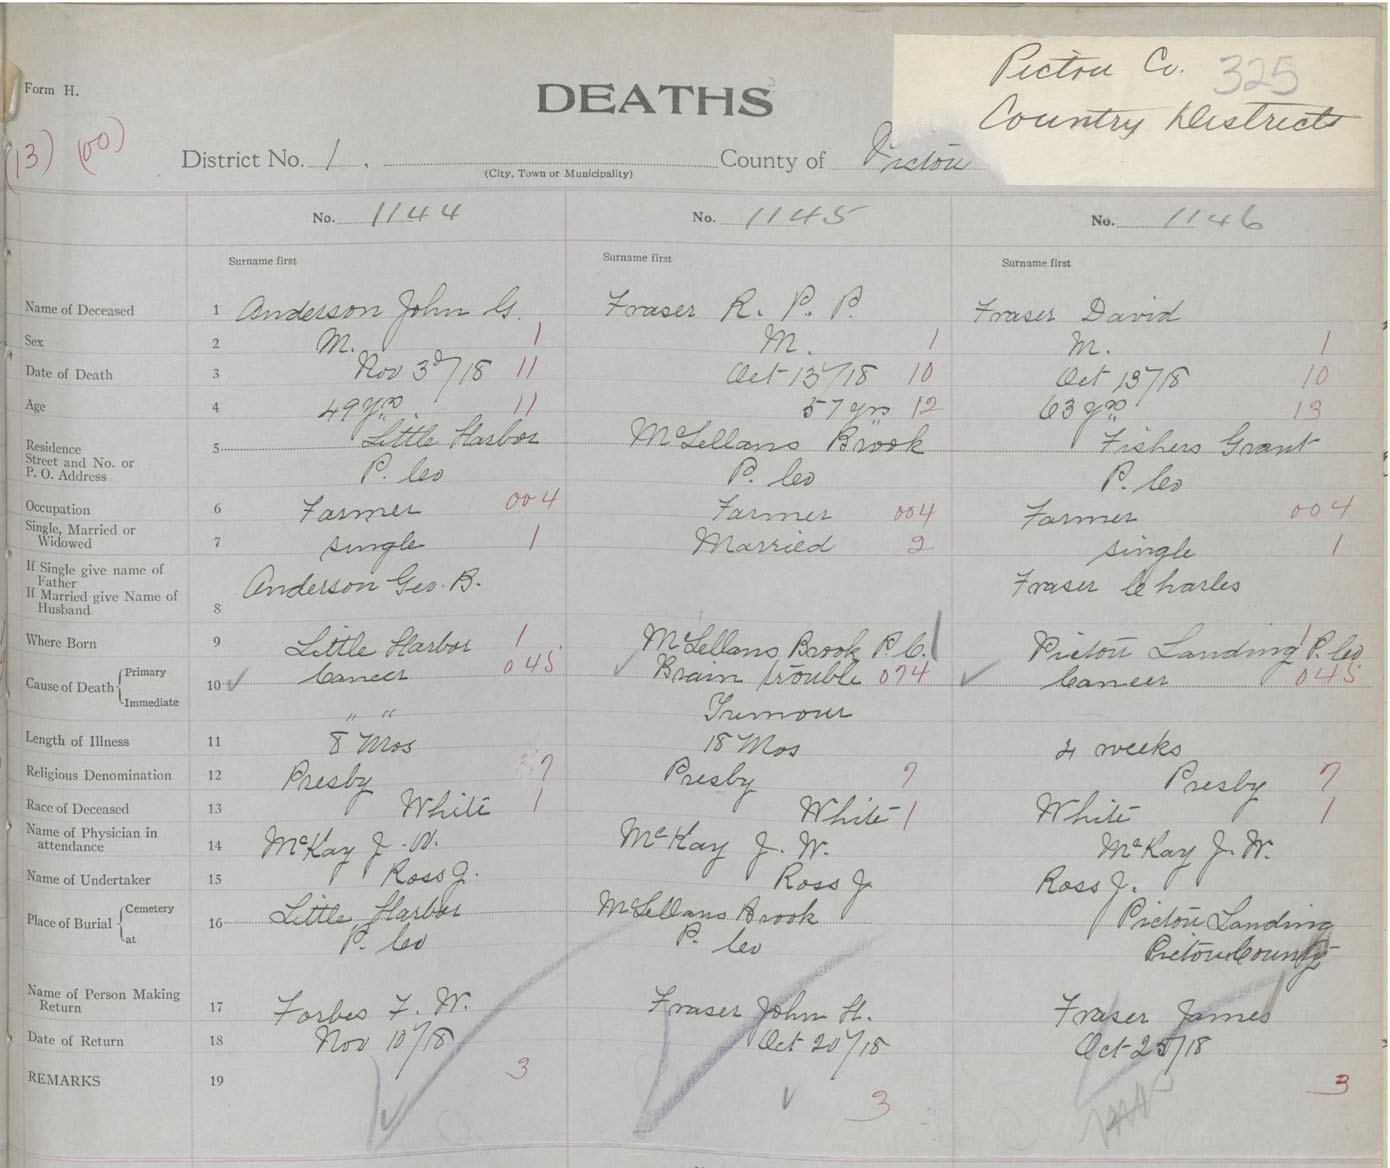 Form H.
DEATHS
Pictou Co. 325
Country Districts
(13) (00)
District No. 1. County of Pictou
(City, Town or Municipality)
No. 1144 No. 1145 No. 1146
Surname first Surname first Surname first
Name of Deceased 1 Anderson John G. Fraser R. P. P. Fraser David
Sex 2 M. 1 M. 1 M. 1
Date of Death 3 Nov 3d/18 11 Oct 13/18 10 Oct 13/18 10
Age 4 49 yrs 11 57 yrs 12 63 yrs 13
Residence
Street and No. or
P. O. Address
5 Little Harbor McLellans Brook Fishers Grant
P. Co P. Co P. Co
Occupation 6 Farmer 004 Farmer 004 Farmer 004
Single, Married or
Widowed 7 single 1 Married 2 single 1
If Single give name of
Father
If Married give Name of
Husband
8 Anderson Geo. B. Fraser Charles
Where Born 9 Little Harbor 1 McLellans Brook P. C. Pictou Landing P. Co 1
Cause of Death Primary 10 Cancer 045 Brain trouble 074 Cancer 045
Immediate " " Tumour
Length of Illness 11 8 Mos 18 Mos 4 weeks
Religious Denomination 12 Presby 7 Presby 7 Presby 7
Race of Deceased 13 White 1 White 1 White 1
Name of Physician in
attendance 14 McKay J. W. McKay J. W. McKay J. W.
Name of Undertaker 15 Ross J. Ross J Ross J.
Place of Burial Cemetery 16 Little Harbor McLellans Brook Pictou Landing
at P. Co P. Co Pictou County
Name of Person Making
Return 17 Forbes F. W. Fraser John H. Fraser James
Date of Return 18 Nov 10/18 Oct 20/18 Oct 25/18
REMARKS 19 3 3 3